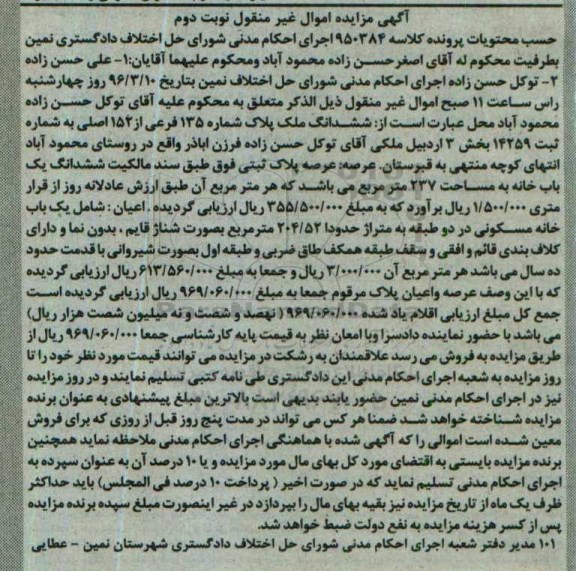 آگهی مزایده اموال غیر منقول نوبت دوم
حسب محتویات پرونده کلاسه ۹۵۰۳۸۴ اجرای احکام مدنی شورای حل اختلاف دادگستری نمین
بطرفیت محکوم له آقای اصغرحسن زاده محمود آباد ومحکوم علیهما آقایان:۱- علی حسن زاده
۲- توکل حسن زاده اجرای احکام مدنی شورای حل اختلاف نمین بتاریخ ۹۶/۳/۱۰ روز چهارشنبه
راس ساعت ۱۱ صبح اموال غیر منقول ذیل الذکر متعلق به محکوم علیه آقای توکل حسن زاده
محمود آباد محل عبارت است از: ششدانگ ملک پلاک شماره ۱۳۵ فرعی از۱۵۲ اصلی به شماره
ثبت ۱۴۲۵۹ بخش ۳ اردبیل ملکی آقای توکل حسن زاده فرزن اباذر واقع در روستای محمود آباد
انتهای کوچه منتهی به قبرستان. عرصه: عرصه پلاک ثبتی فوق طبق سند مالکیت ششدانگ یک
باب خانه به مساحت ۲۳۷ متر مربع می باشد که هر متر مربع آن طبق ارزش عادلانه روز از قرار
متری ۱/۵۰۰/۰۰۰ ریال برآورد که به مبلغ ۳۵۵/۵۰۰/۰۰۰ ریال ارزیابی گردیده . اعیان : شامل یک باب
خانه مسکونی در دو طبقه به متراژ حدودا ۲۰۴/۵۲ مترمربع بصورت شناژ قایم ، بدون نما و دارای
کلاف بندی قائم و افقی و سقف طبقه همکف طاق ضربی و طبقه اول بصورت شیروانی با قدمت حدود
ده سال می باشد هر متر مربع آن ۳/۰۰۰/۰۰۰ ریال و جمعا به مبلغ ۶۱۳/۵۶۰/۰۰۰ ریال ارزیابی گردیده
که با این وصف عرصه واعیان پلاک مرقوم جمعا به مبلغ ۹۶۹/۰۶۰/۰۰۰ ریال ارزیابی گردیده است
جمع کل مبلغ ارزیابی اقلام یاد شده ۹۶۹/۰۶۰/۰۰۰ ( نهصد و شصت و نه میلیون شصت هزار ریال)
می باشد با حضور نماینده دادسرا وبا امعان نظر به قیمت پایه کارشناسی جمعا ۹۶۹/۰۶۰/۰۰۰ ریال از
طریق مزایده به فروش می رسد علاقمندان به رشکت در مزایده می توانند قیمت مورد نظر خود را تا
روز مزایده به شعبه اجرای احکام مدنی این دادگستری طی نامه کتبی تسلیم نمایند و در روز مزایده
نیز در اجرای احکام مدنی نمین حضور یابند بدیهی است بالاترین مبلغ پیشنهادی به عنوان برنده
مزایده شناخته خواهد شد ضمنا هر کس می تواند در مدت پنج روز قبل از روزی که برای فروش
معین شده است اموالی را که آگهی شده با هماهنگی اجرای احکام مدنی ملاحظه نماید همچنین
برنده مزایده بایستی به اقتضای مورد کل بهای مال مورد مزایده و یا ۱۰ درصد آن به عنوان سپرده به
اجرای احکام مدنی تسلیم نماید که در صورت اخیر ( پرداخت ۱۰ درصد فی المجلس) باید حداکثر
ظرف یک ماه از تاریخ مزایده نیز بقیه بهای مال را بپردازد در غیر اینصورت مبلغ سپده برنده مزایده
پس از کسر هزینه مزایده به نفع دولت ضبط خواهد شد.
۱۰۱ مدیر دفتر شعبه اجرای احکام مدنی شورای حل اختلاف دادگستری شهرستان نمین - عطایی